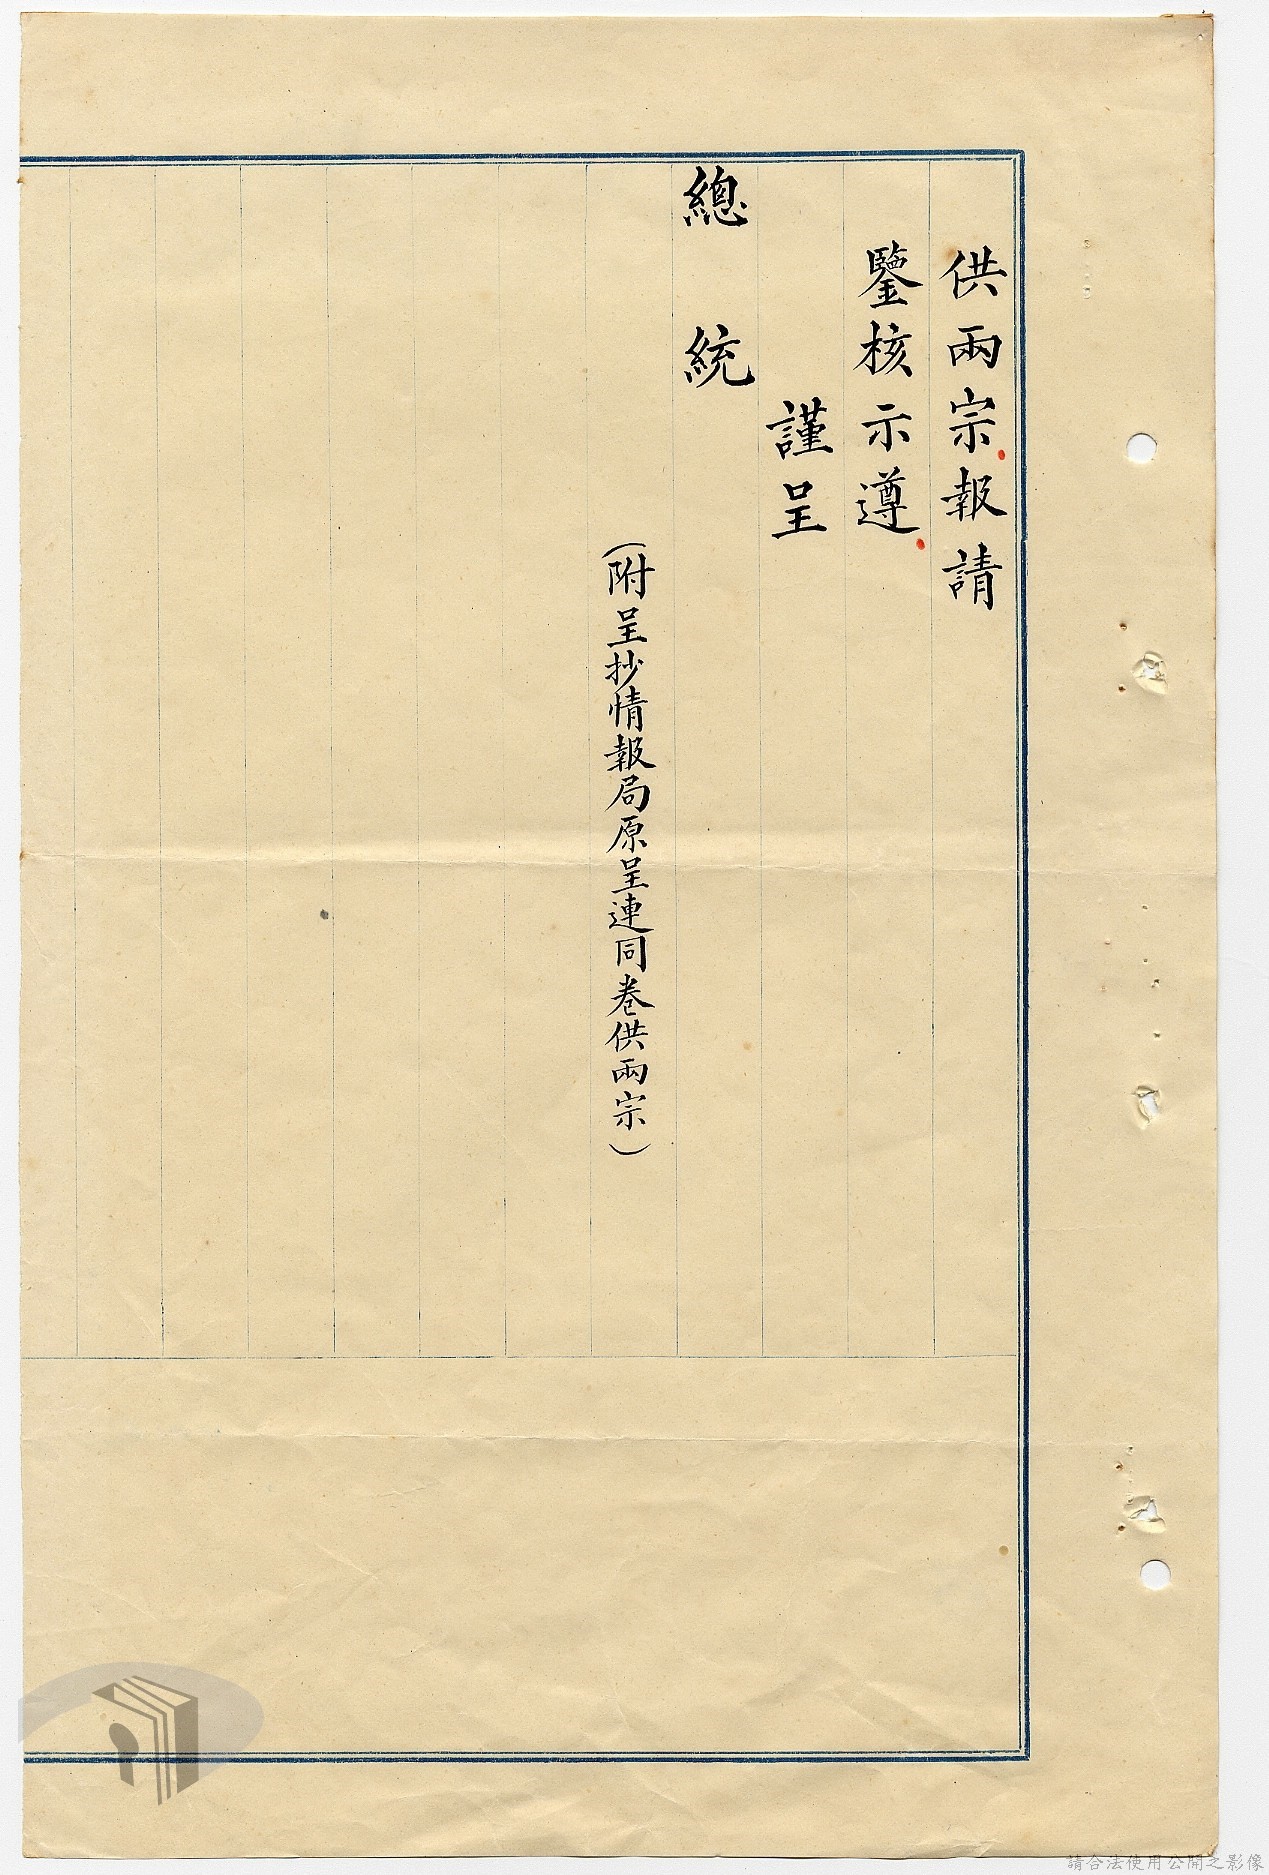 供兩宗報請
鑒核示遵
謹呈
總統
(附呈抄情報局原呈連同卷供兩宗)
請合法使用公開之影像